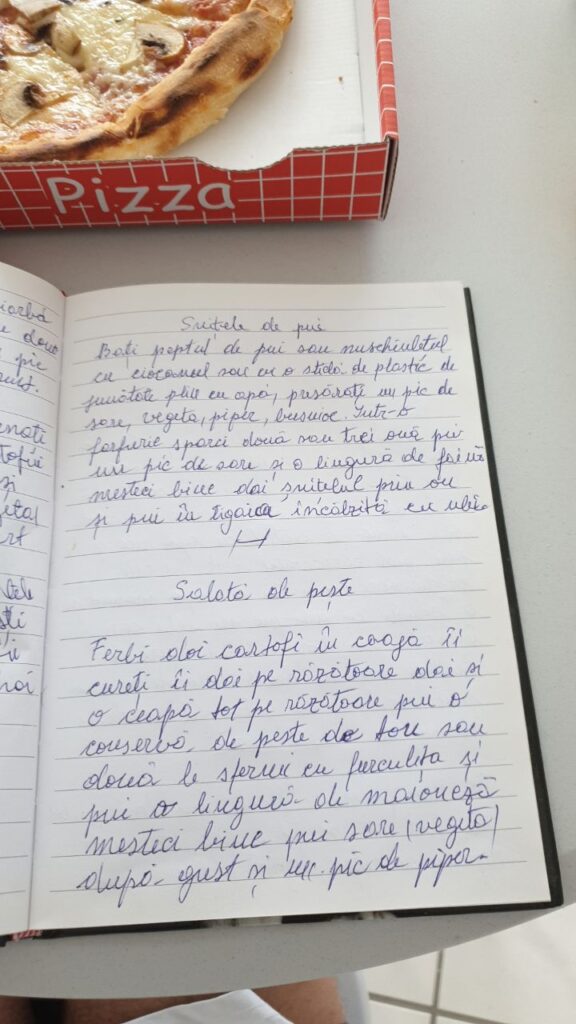 Pizza
iorbă
e două
pic
nust.
tofii
și
getal
rt
Șnițele de pui
Bați peptul de pui sau mușchiulețul
cu ciocanul sau cu o sticlă de plastic de
jumătate plină cu apă, presărați un pic de
sare, vegeta, piper, busuioc. Într-o
farfurie spargi două sau trei ouă pui
un pic de sare și o lingură de făină
mesteci bine dai șnițelul prin ou
și pui în tigaia încălzită cu ulei.
Salată de pește
Ferbi doi cartofi în coajă îi
cureți îi dai pe răzătoare dai și
o ceapă tot pe răzătoare pui o
conservă de pește de ton sau
două le sfermi cu furculița și
pui o lingură de maioneză
mesteci bine pui sare (vegeta)
după gust și un pic de piper.